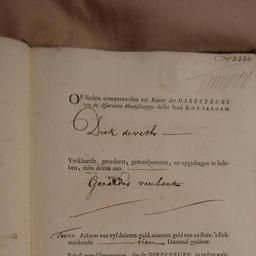 Nº 3330.
OP heden compareerden ter Kamer der DIRECTEURS
van de Assurantie Maatschappye deser Stad ROTTERDAM
Dirk deveth
Verklaarde, gecedeert, getransporteert, en opgedragen te heb-
ben, mits deezen aan
Gerardus
Twee Actien van vyf duizent guld, courant geld van
maekende tien Duizend guldens
DIRECTEURS: